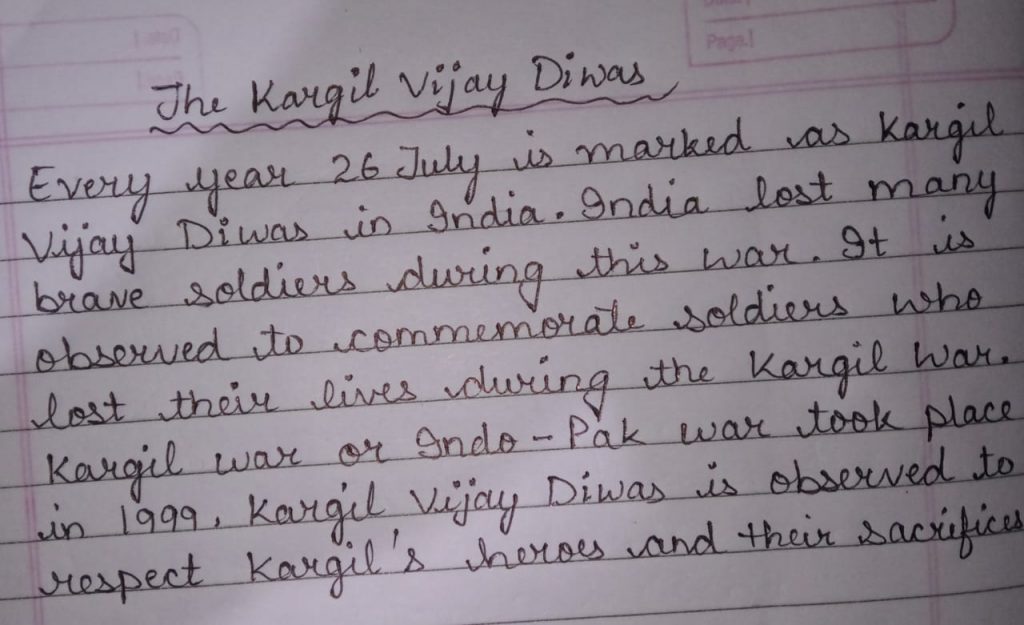 Page.|
The Kargil Vijay Diwas
Every year 26 July is marked as Kargil
Vijay Diwas in India. India lost many
brave soldiers during this war. It is
observed to commemorate soldiers who
lost their lives during the Kargil War.
Kargil war or Indo-Pak war took place
in 1999, Kargil Vijay Diwas is observed to
respect Kargil's heroes and their sacrifices